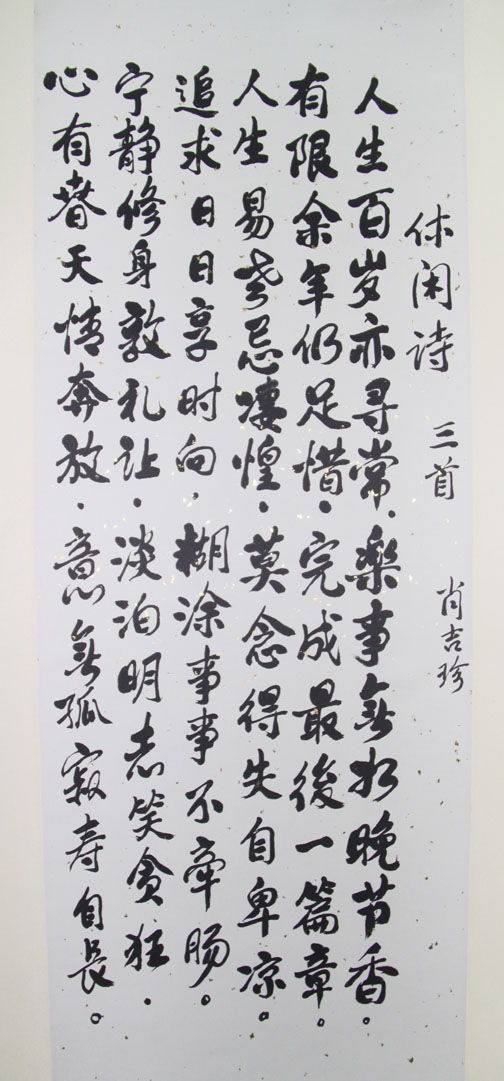 休闲诗 三首 肖吉珍
人生百岁亦寻常.乐事无如晚节香。
有限余年仍足惜.完成最後一篇章。
人生易老忌凄惶.莫念得失自卑凉。
追求日日享时向.糊涂事事不牵肠。
宁静修身敦礼让.淡泊明志笑贪狂.
心有春天情奔放.意无孤寂寿自長。